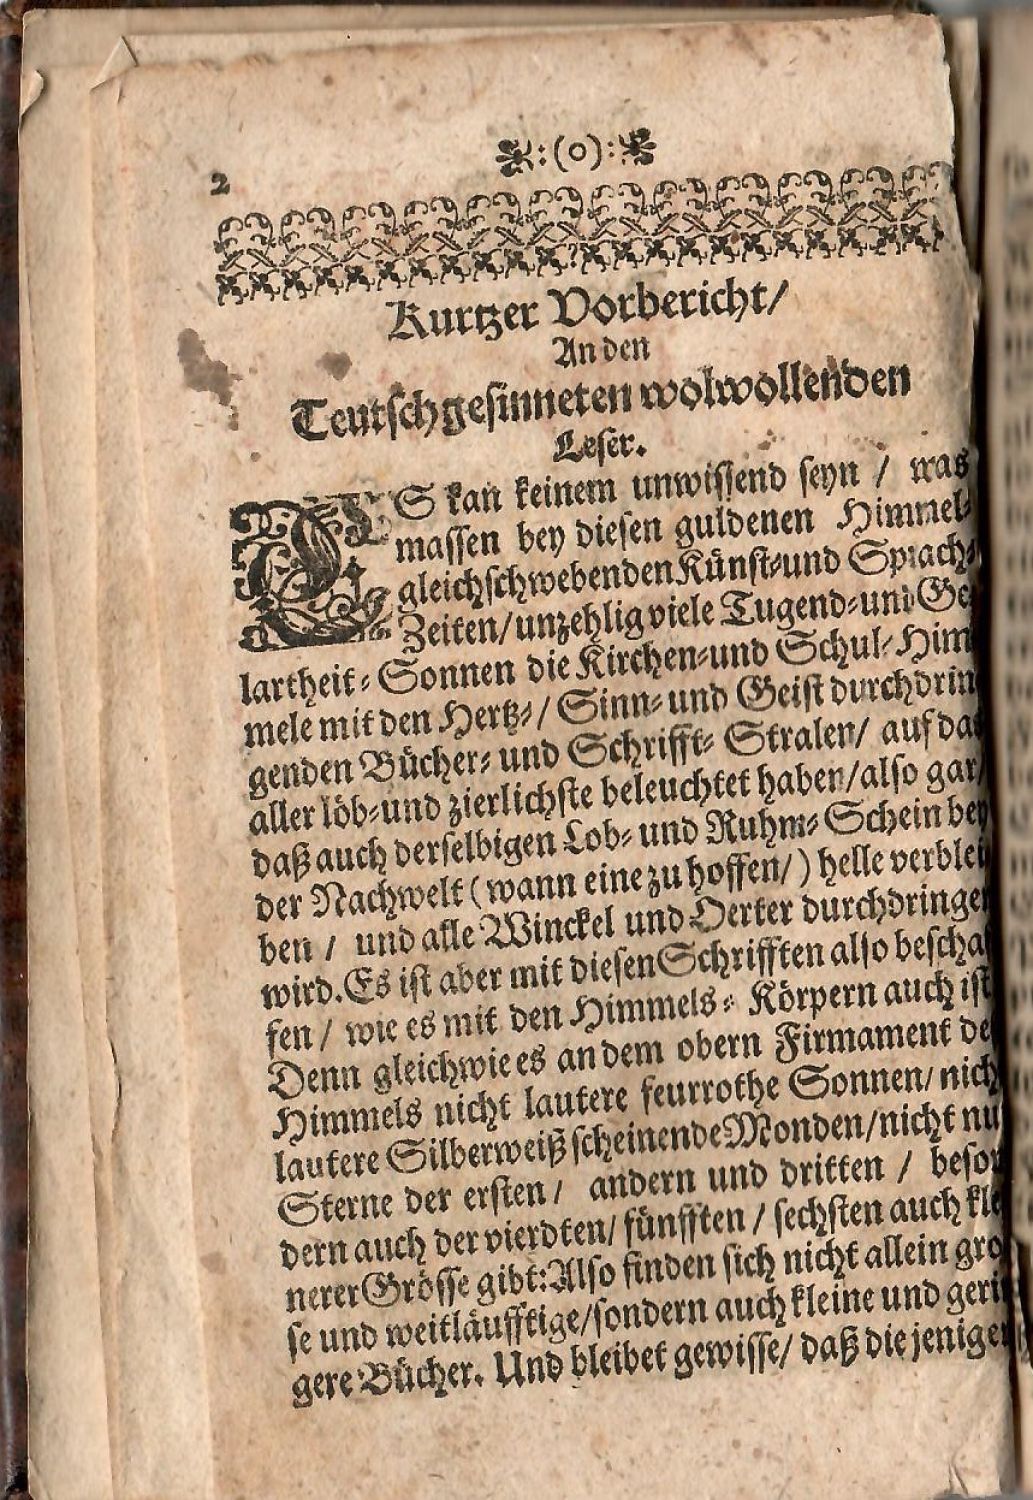 2
:(o):
Kurtzer Vorbericht/
An den
Teutschgesinneten wolwollenden
Leser.
ES kan keinem unwissend seyn / was
massen bey diesen guldenen Himmel-
gleichschwebenden Künst-und Sprach-
Zeiten/unzehlig viele Tugend-und Ge
lartheit-Sonnen die Kirchen-und Schul-Him
mele mit den Hertz-/ Sinn-und Geist durchdrin
genden Bücher-und Schrifft-Stralen/ auf das
aller löb-und zierlichste beleuchtet haben/also gar/
daß auch derselbigen Lob-und Ruhm-Schein bey
der Nachwelt (wann eine zu hoffen/) helle verblei
ben / und alle Winckel und Oerter durchdringen
wird. Es ist aber mit diesen Schrifften also beschaf
fen / wie es mit den Himmels-Körpern auch ist
Denn gleichwie es an dem obern Firmament des
Himmels nicht lautere feurrothe Sonnen/ nich
lautere Silberweiß scheinende Monden/nicht nu
Sterne der ersten / andern und dritten / beson
dern auch der vierdten/ fünfften / sechsten auch kle
nerer Grösse gibt: Also finden sich nicht allein gro
se und weitläufftige/sondern auch kleine und gerin
gere Bücher. Und bleibet gewisse/ daß die jenigen